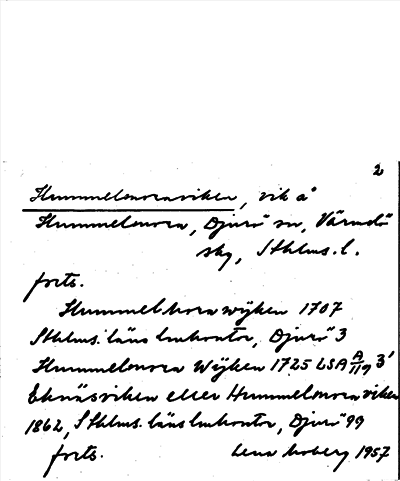 2
Hummelmoraviken, vik å
Hummelmora, Djurö sn, Värmdö
skg, Sthlms. l.
forts.
Hummelmora wijken 1707
Sthlms. läns lmkontor, Djurö 3
Hummelmora Wijken 1725 LSA A 117 3¹
Eknäsviken eller Hummelmora viken
1862, Sthlms. läns lmkontor, Djurö 99
forts. Lena Moberg 1957